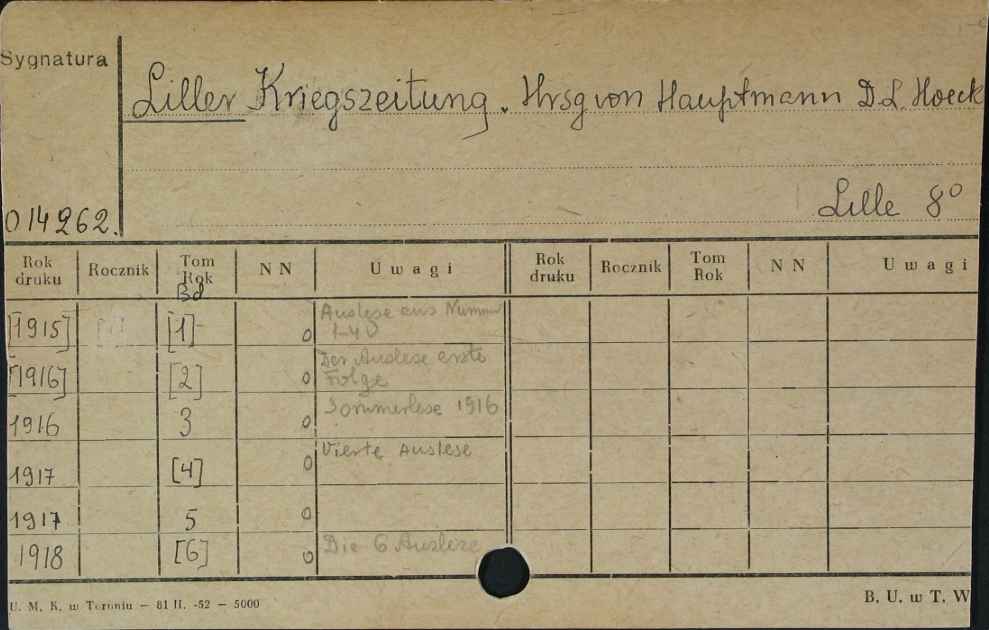 Sygnatura
Liller Kriegszeitung. Hrsg von Hauptmann D.L. Hoeck
Lille 8°
014262.
Rok druku Rocznik Tom Rok NN Uwagi Rok druku Rocznik Tom Rok NN Uwagi
Bd
[1915] [1] 0 Auslese aus Nummer
1-40
[1916] [2] 0 Der Auslese erste
Folge
1916 3 0 Sommerlese 1916
1917 [4] 0 Vierte Auslese
1917 5 0
1918 [6] 0 Die 6 Auslese
U. M. K. w Toruniu — 81 II. -52 — 5000
B. U. w T. W